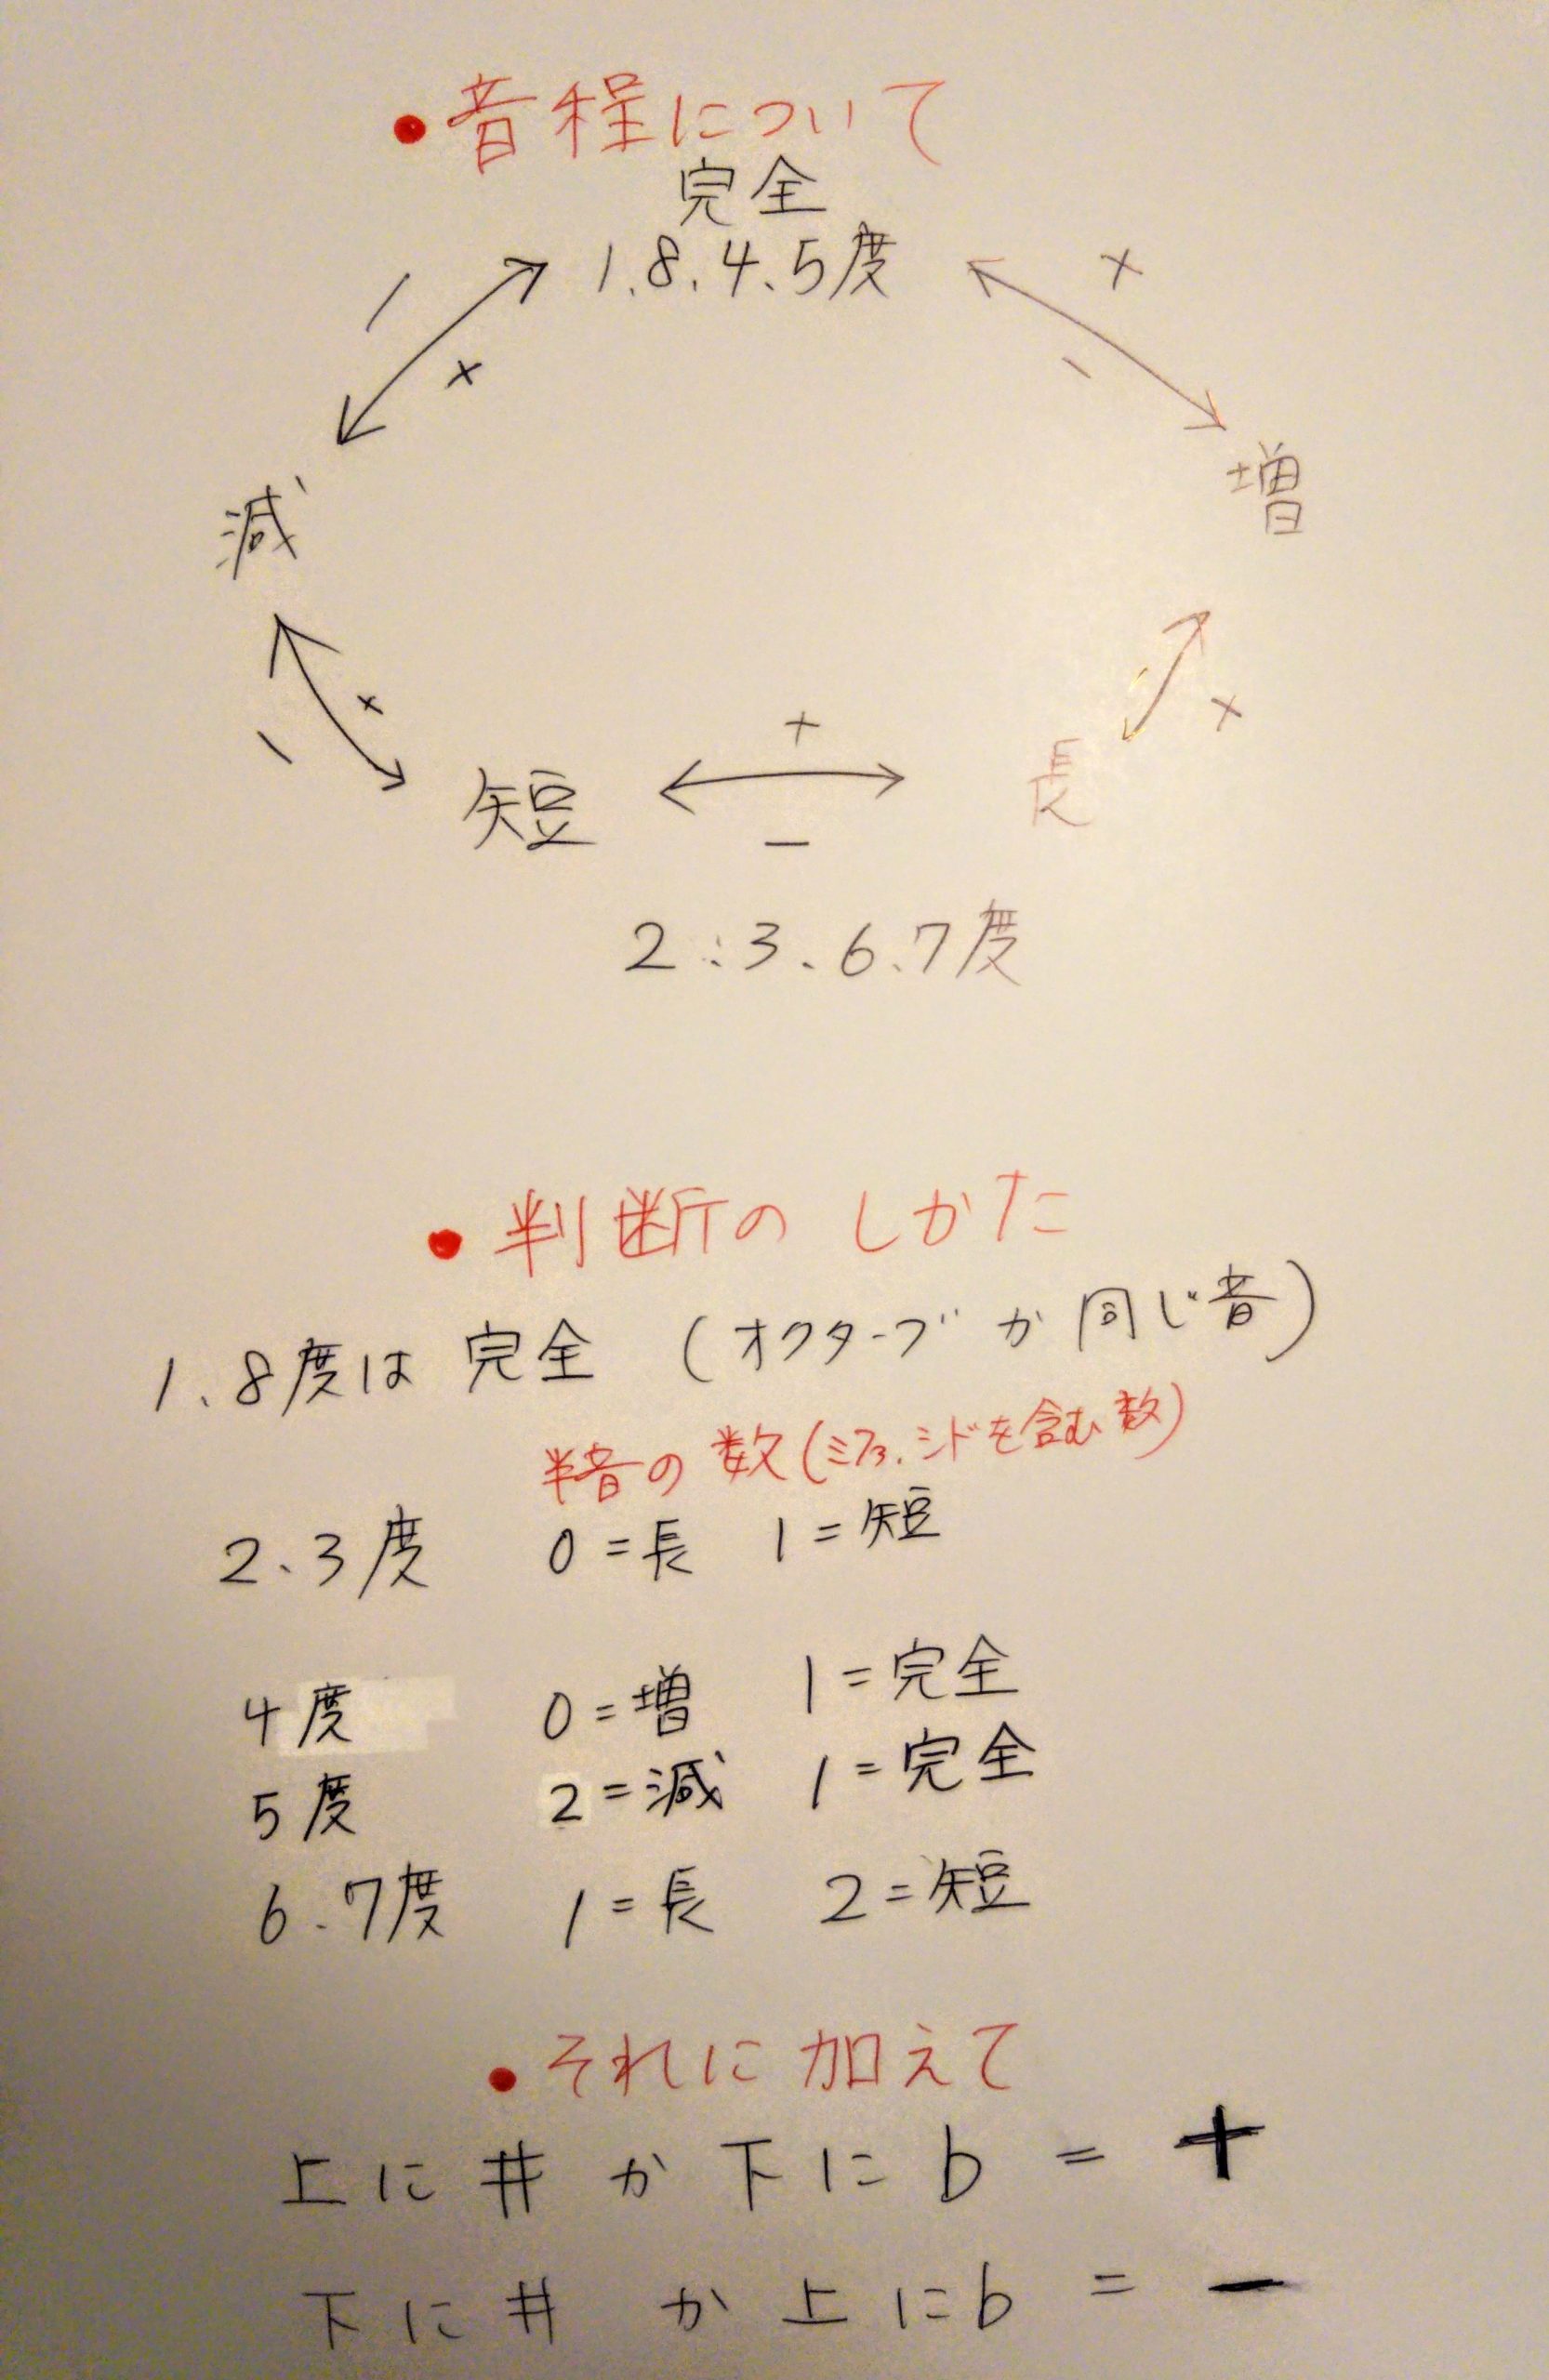 ・音程について
完全
1.8.4.5度
− + + −
減 増
− + + −
短 長
+
−
2.3.6.7度
・判断のしかた
1.8度は 完全 (オクターブ か 同じ音)
半音の数(ミファ.シドを含む数)
2.3度 0=長 1=短
4度 0=増 1=完全
5度 2=減 1=完全
6.7度 1=長 2=短
・それに加えて
上に # か 下に b = +
下に # か 上に b = −